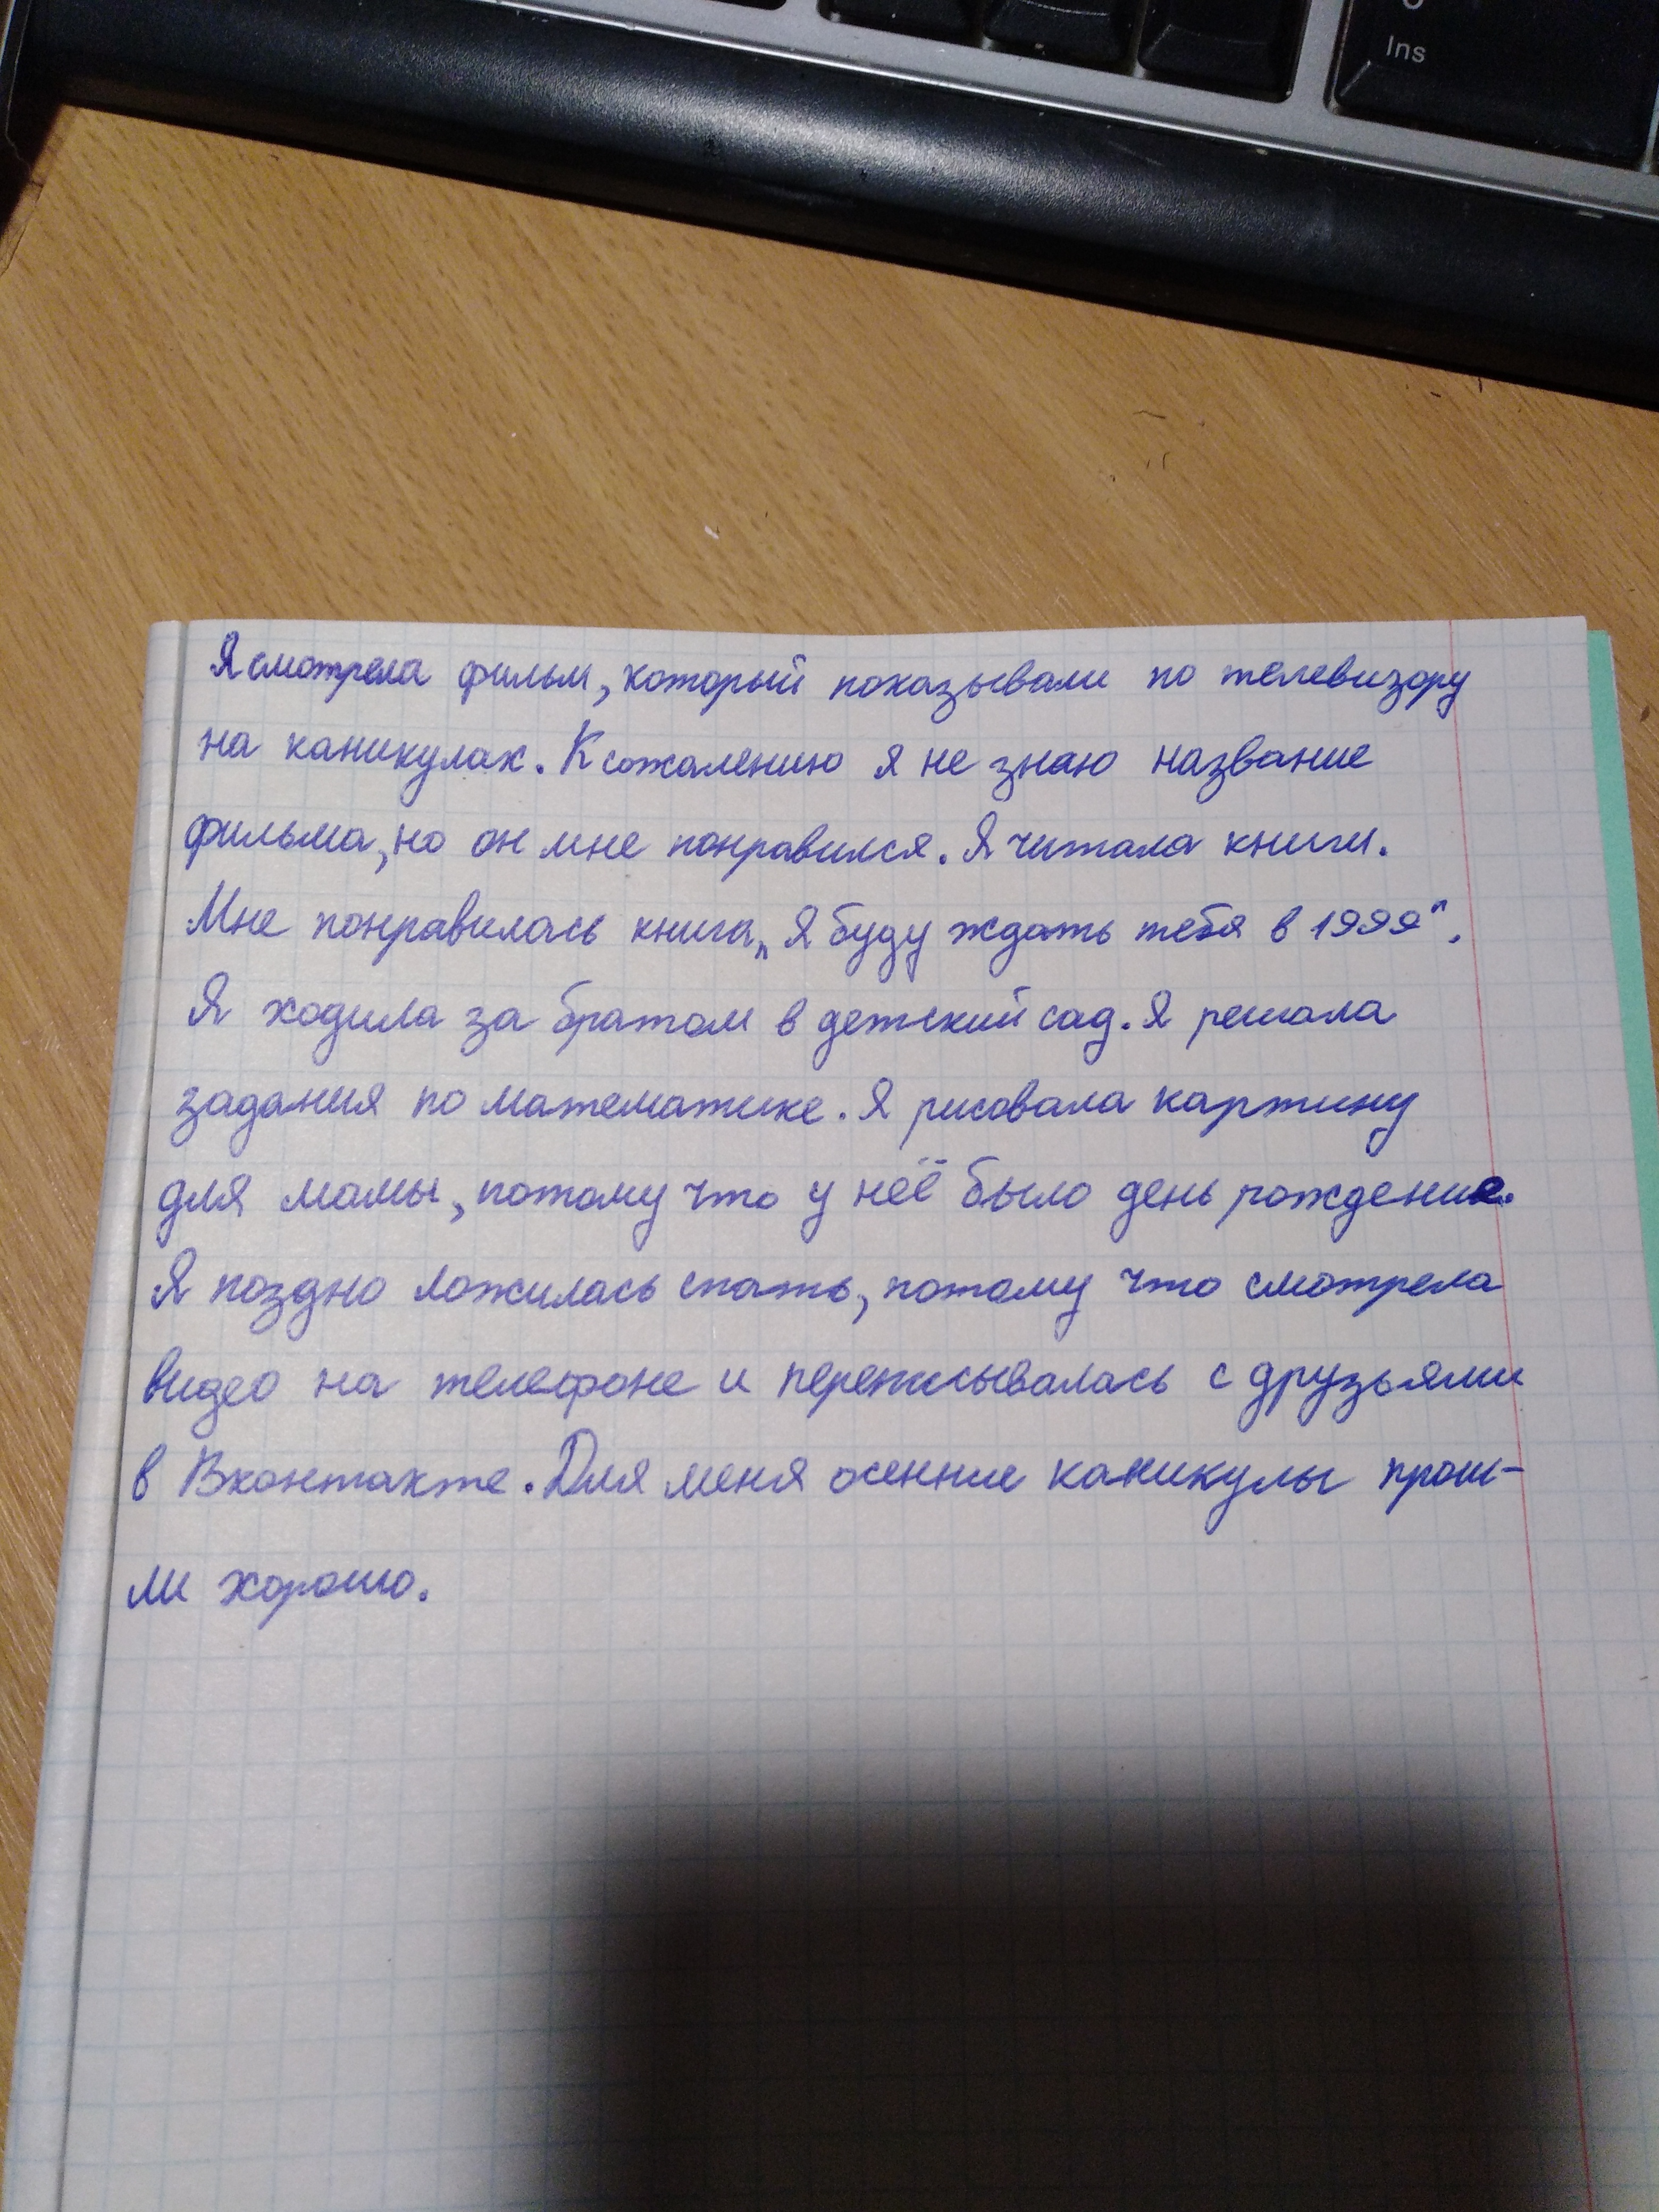 Ins
Я смотрела фильм, который показывали по телевизору
на каникулах. К сожалению я не знаю название
фильма, но он мне понравился. Я читала книги.
Мне понравилась книга „Я буду ждать тебя в 1999".
Я ходила за братом в детский сад. Я решала
задания по математике. Я рисовала картину
для мамы, потому что у неё было день рождение.
Я поздно ложилась спать, потому что смотрела
видео на телефоне и переписывалась с друзьями
в Вконтакте. Для меня осенние каникулы прош-
ли хорошо.